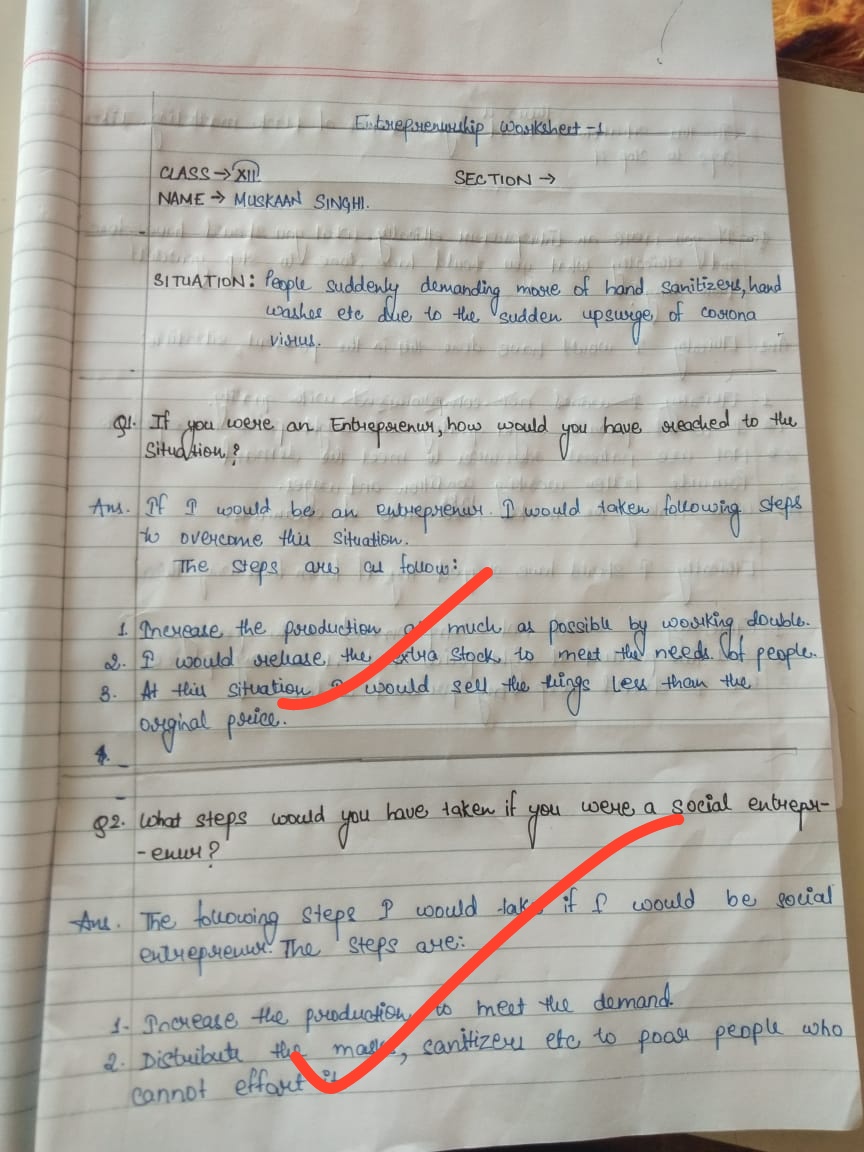 Entreprenurship Worksheet -1
CLASS → XII SECTION →
NAME → MUSKAAN SINGHI.
SITUATION: People suddenly demanding more of hand sanitizers, hand
washes etc due to the sudden upsurge of corona
virus.
Q1. If you were an Entreprenur, how would you have reached to the
situation?
Ans. If I would be an entreprenur. I would taken following steps
to overcome this situation.
The steps are as follow:
1. Increase the production as much as possible by working double.
2. I would release the extra stock to meet the needs of people.
3. At this situation I would sell the things less than the
orginal price.
4.
Q2. What steps would you have taken if you were a social entrepr-
-enur?
Ans. The following steps I would take if I would be social
entreprenur. The steps are:
1. Increase the production to meet the demand.
2. Distribute the masks, sanitizers etc to poar people who
cannot effort it